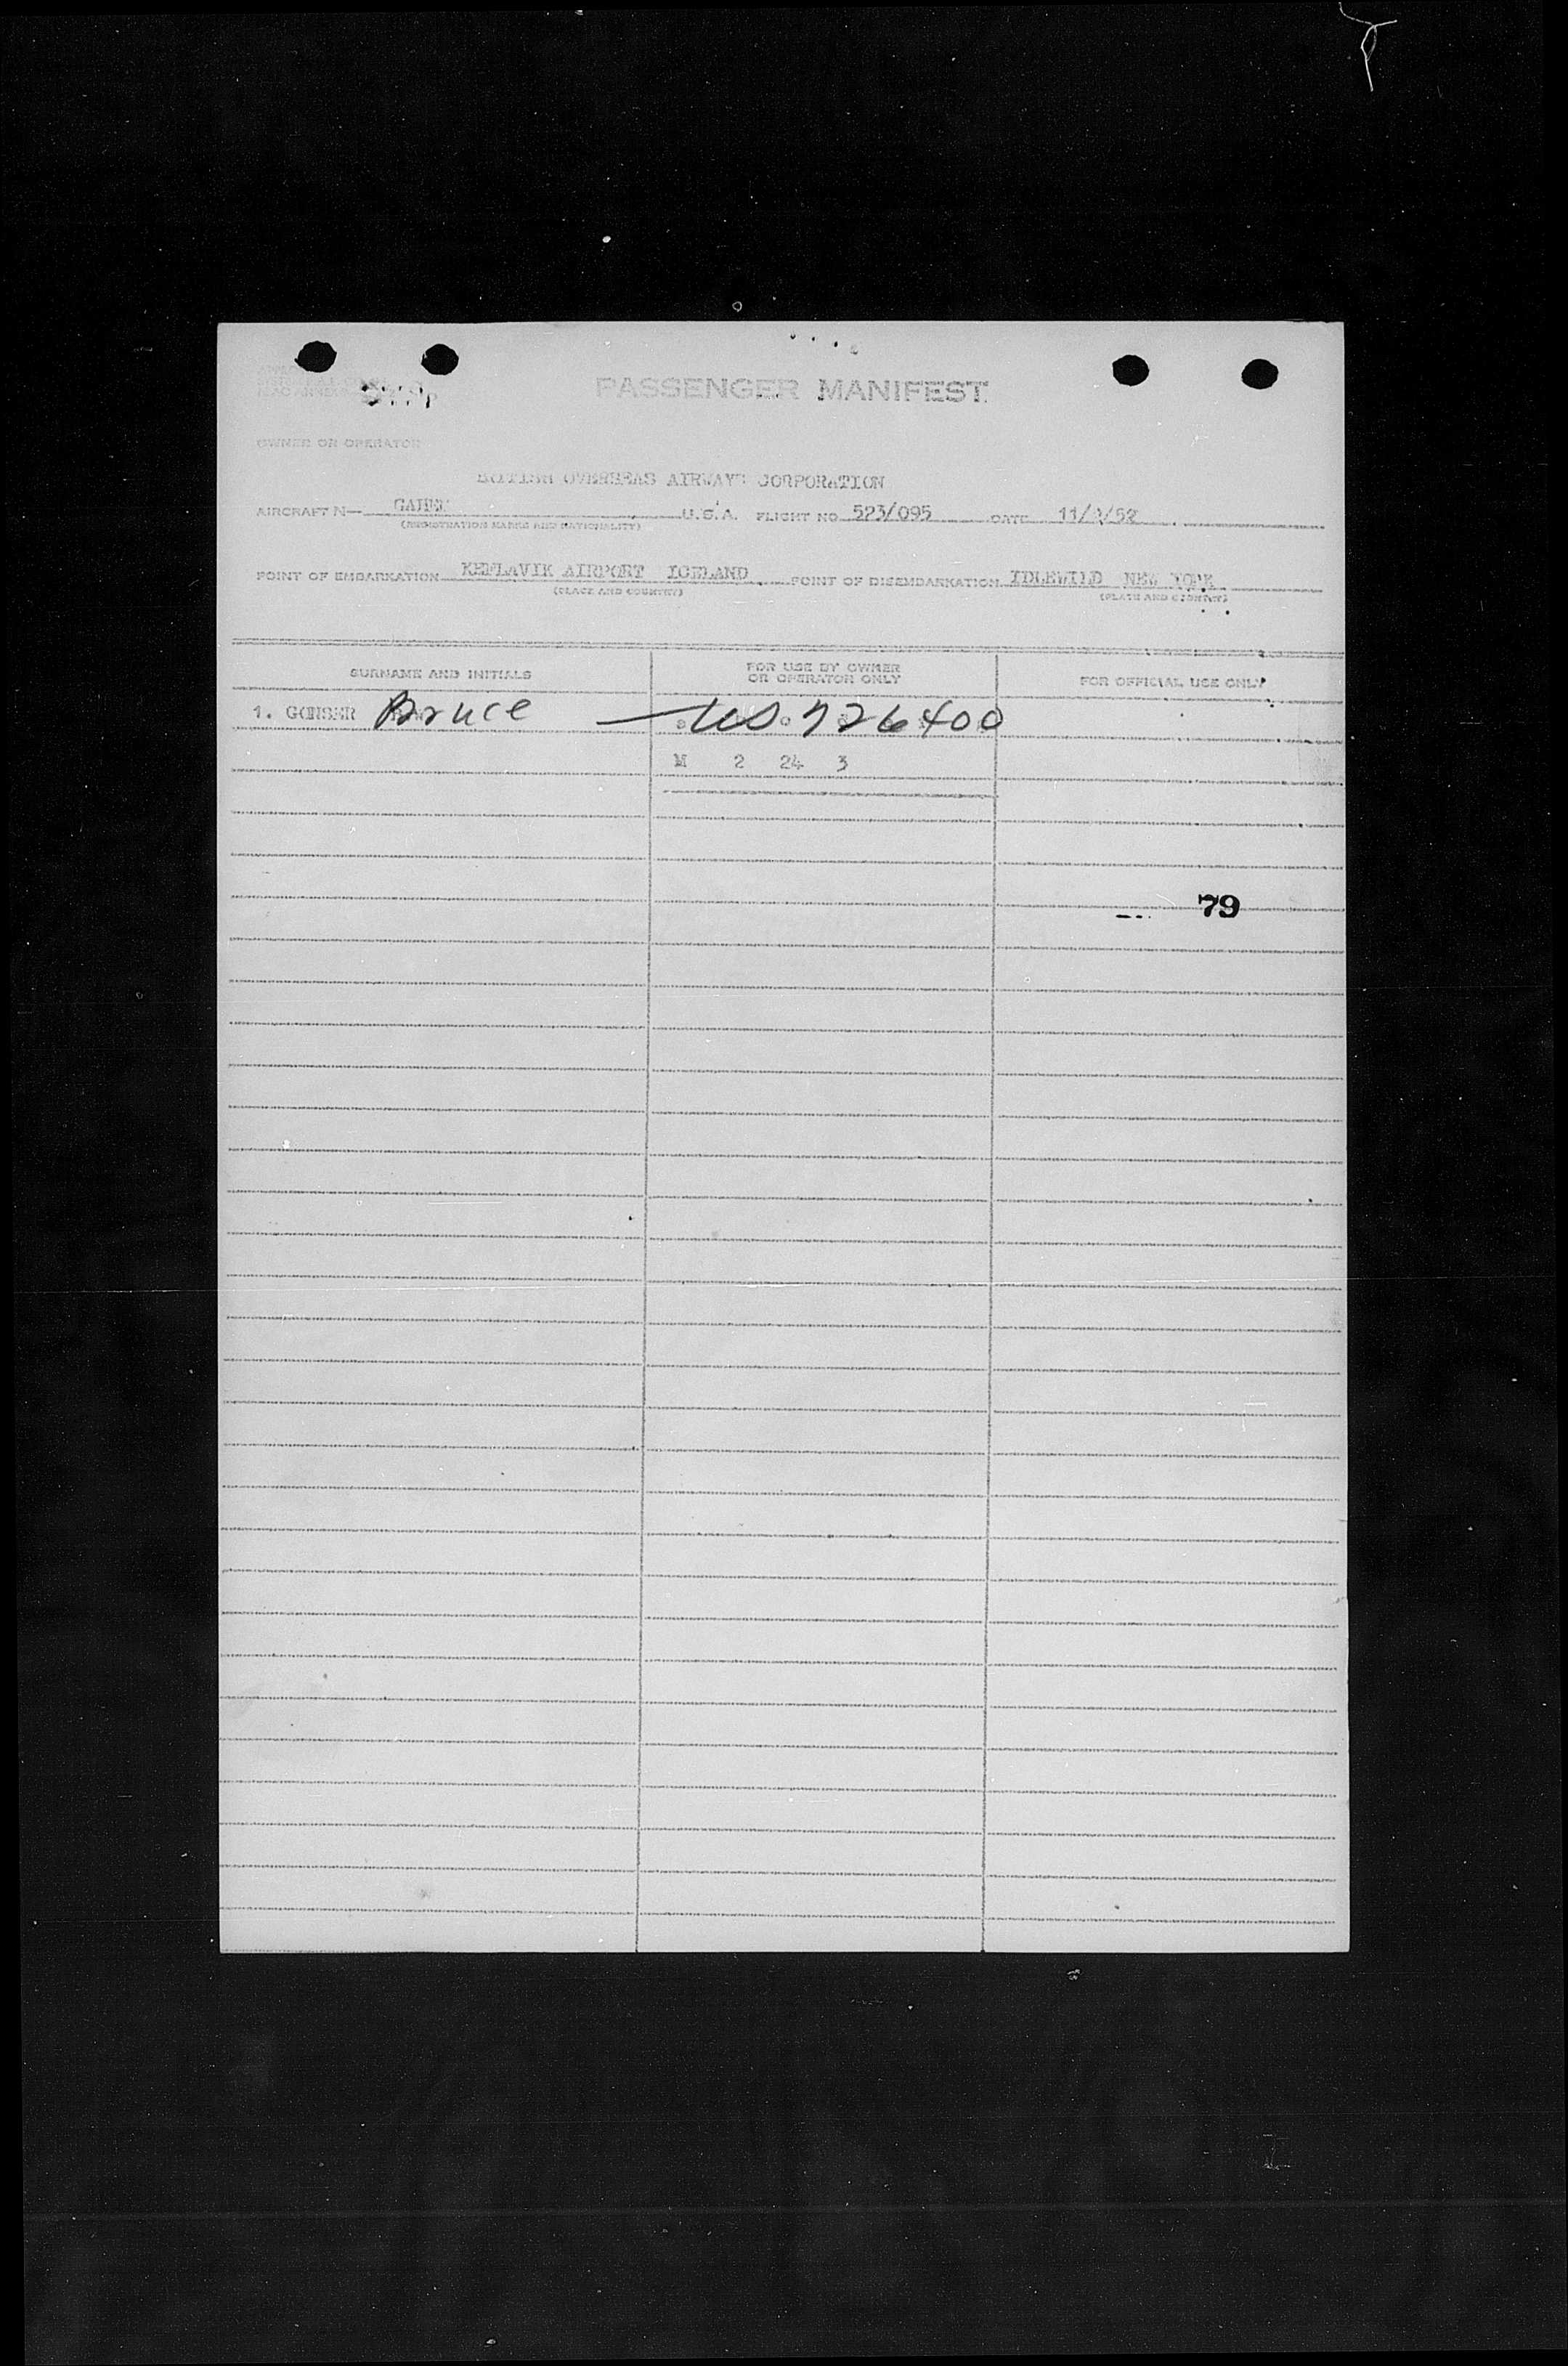 PASSENGER MANIFEST
OWNER OR OPERATOR
BRITISH OVERSEAS AIRWAYS CORPORATION
AIRCRAFT N— U.S.A. FLIGHT NO 523/095 DATE
(REGISTRATION MARKS AND NATIONALITY)
POINT OF EMBARKATION KEFLAVIK AIRPORT ICELAND POINT OF DISEMBARKATION IDLEWILD NEW YORK
(PLACE AND COUNTRY) (PLACE AND COUNTRY)
SURNAME AND INITIALS FOR USE BY OWNER OR OPERATOR ONLY FOR OFFICIAL USE ONLY
1. GONSER Bruce — US 726400
M 2 24 3
79